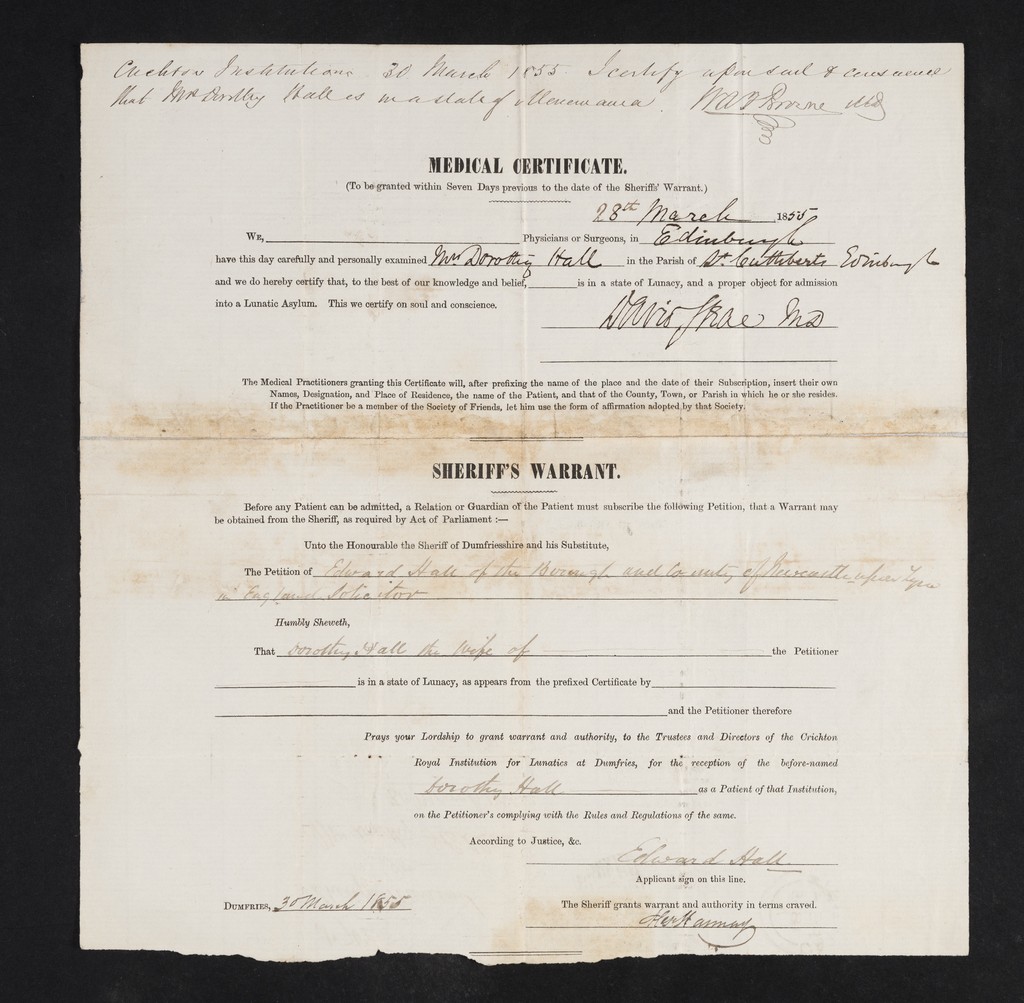 Crichton Institution 30 March 1855. I certify upon soul & conscience
that Mrs Dorothy Hall is in a state of Monomania. WAF Browne MD
MEDICAL CERTIFICATE.
(To be granted within Seven Days previous to the date of the Sheriffs' Warrant.)
28th March 1855
WE, Physicians or Surgeons, in Edinburgh
have this day carefully and personally examined Mrs Dorothy Hall in the Parish of St Cuthberts Edinburgh
and we do hereby certify that, to the best of our knowledge and belief, is in a state of Lunacy, and a proper object for admission
into a Lunatic Asylum. This we certify on soul and conscience.
David Skae MD
The Medical Practitioners granting this Certificate will, after prefixing the name of the place and the date of their Subscription, insert their own
Names, Designation, and Place of Residence, the name of the Patient, and that of the County, Town, or Parish in which he or she resides.
If the Practitioner be a member of the Society of Friends, let him use the form of affirmation adopted by that Society.
SHERIFF'S WARRANT.
Before any Patient can be admitted, a Relation or Guardian of the Patient must subscribe the following Petition, that a Warrant may
be obtained from the Sheriff, as required by Act of Parliament :—
Unto the Honourable the Sheriff of Dumfriesshire and his Substitute,
The Petition of Edward Hall of the Borough and County of Newcastle upon Tyne
in England Solicitor
Humbly Sheweth,
That Dorothy Hall the Wife of the Petitioner
is in a state of Lunacy, as appears from the prefixed Certificate by
and the Petitioner therefore
Prays your Lordship to grant warrant and authority, to the Trustees and Directors of the Crichton
Royal Institution for Lunatics at Dumfries, for the reception of the before-named
Dorothy Hall as a Patient of that Institution,
on the Petitioner's complying with the Rules and Regulations of the same.
According to Justice, &c.
Edward Hall
Applicant sign on this line.
DUMFRIES, 30 March 1855
The Sheriff grants warrant and authority in terms craved.
Hannay